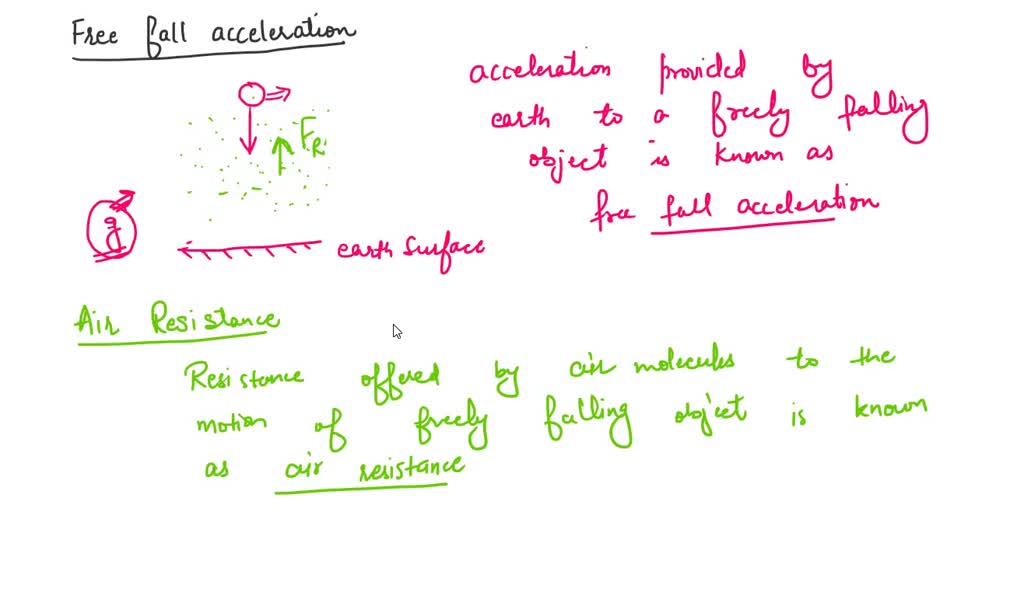 Free fall acceleration
acceleration provided by
earth to a freely falling
object is known as
free fall acceleration
FR
g
earth surface
Air Resistance
Resistance offered by air molecules to the
motion of freely falling object is known
as air resistance